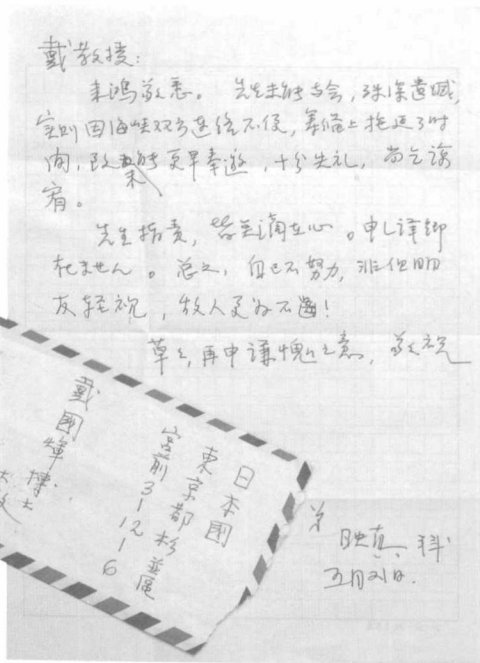 戴教授：
來鴻敬悉。先生未能与会，殊深遺憾，
实则因海峡双方連络不便，筹備上拖延了时
间，致未能更早奉邀，十分失礼，尚乞諒
宥。
先生指责，皆  在心。申し訳御
在ません。总之，自己不努力，非但朋
友轻视，敌人更为不齿！
草々，再申謙愧之意，敬祝
弟
映真 拜
五月21日.
日本國
東京都杉並區
宮前3-12-6
戴國煇博士